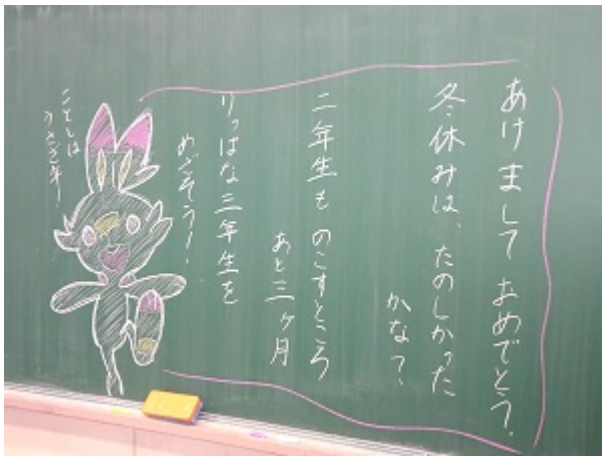 あけまして おめでとう。
冬休みは、たのしかった
かな？
二年生も のこすところ
あと三ヶ月
りっぱな三年生を
めざそう！
ことしは
うさぎ年！